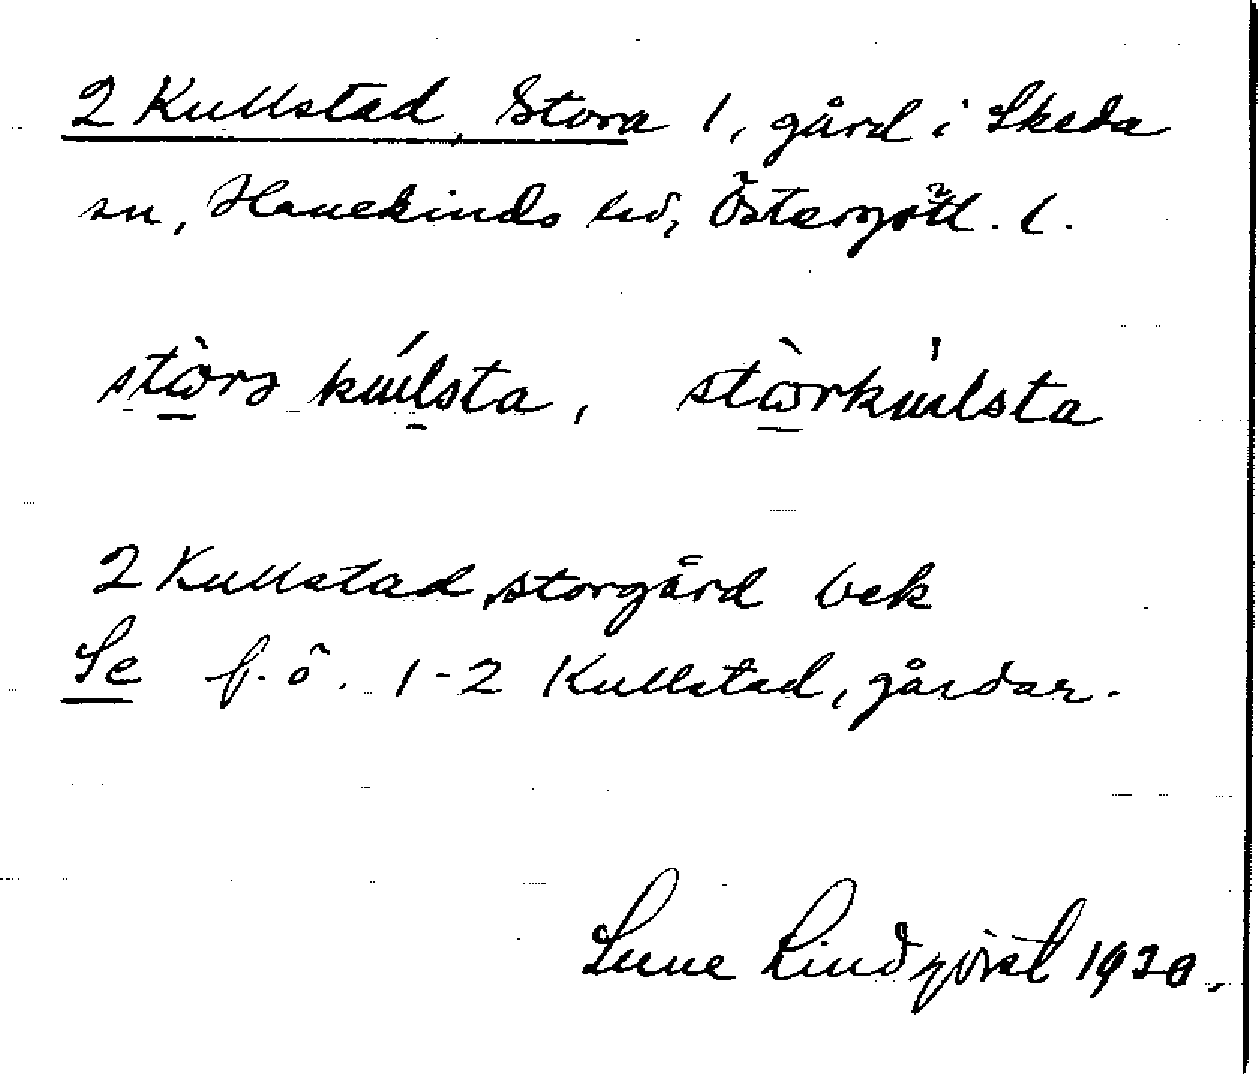 2 Kullstad, Stora 1, gård i Skeda
sn, Hanekinds hd, Östergötl. l.
stòrə kúlsta, stòrkùlsta
2 Kullstad, storgård bek
Se f.ö. 1-2 Kullstad, gårdar.
Sune Lindqvist 1920.